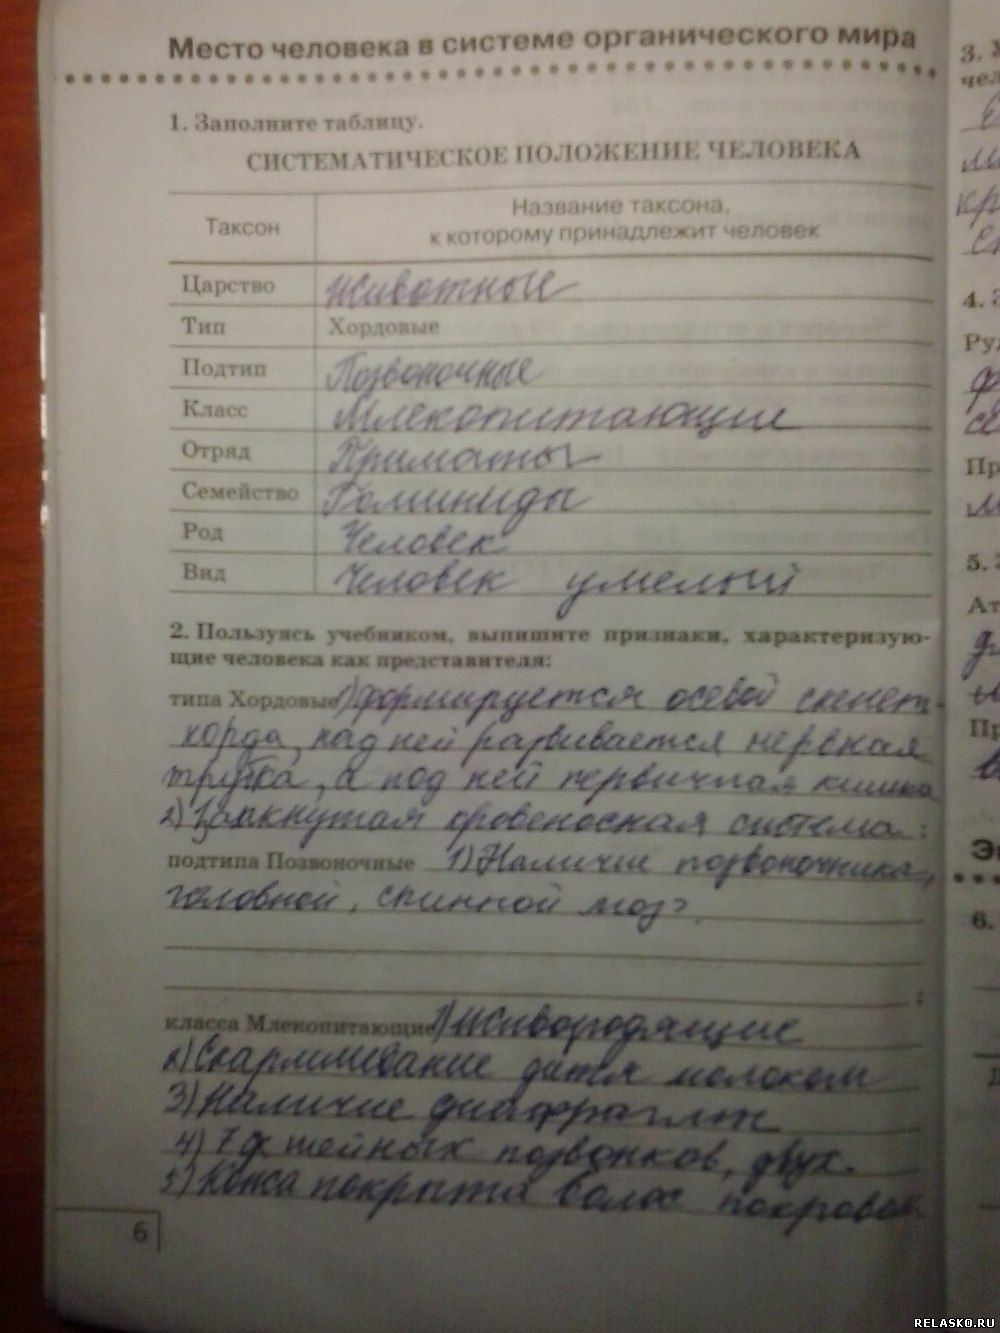 Место человека в системе органического мира
1. Заполните таблицу.
СИСТЕМАТИЧЕСКОЕ ПОЛОЖЕНИЕ ЧЕЛОВЕКА
Таксон
Название таксона,
к которому принадлежит человек
Царство Животные
Тип Хордовые
Подтип Позвоночные
Класс Млекопитающие
Отряд Приматы
Семейство Гоминиды
Род Человек
Вид Человек умелый
2. Пользуясь учебником, выпишите признаки, характеризую-
щие человека как представителя:
типа Хордовые 1) формируется осевой скелет-
хорда, над ней развивается нервная
трубка, а под ней первичная кишка
2) Замкнутая кровеносная система ;
подтипа Позвоночные 1) Наличие позвоночника,
головной, спинной мозг
;
класса Млекопитающие 1) Живородящие
2) Скармливание молоком
3) Наличие диафрагмы
4) 7 шейных позвонков, двух.
5) Кожа покрыта волос покровом
6
3.
чел
4.
Руд
Пр
5.
Ат
Пр
6.
RELASKO.RU